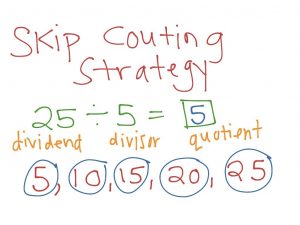 Skip Couting
Strategy
25 ÷ 5 = 5
dividend divisor quotient
5, 10, 15, 20, 25